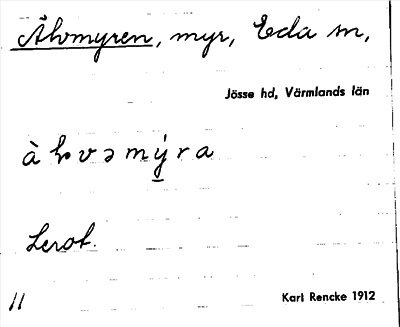 Åhvmyren, myr, Eda sn,
Jösse hd, Värmlands län
Lerot.
11
Karl Rencke 1912